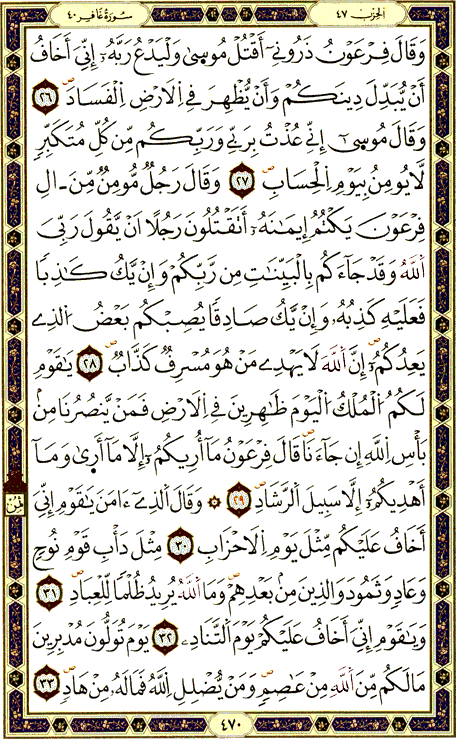 سُورَةُ غَافِر ٤٠ الحِزْب ٤٧
وَقَالَ فِرْعَوْنُ ذَرُونِيٓ أَقْتُلْ مُوسىٰ وَلْيَدْعُ رَبَّهُۥٓ إِنِّيَ أَخَافُ
أَنْ يُّبَدِّلَ دِينَكُمْ وَأَنْ يُّظْهِرَ فِي اِ۬لَارْضِ اِ۬لْفَسَادَۖ ٢٦
وَقَالَ مُوسىٰٓ إِنِّي عُذْتُ بِرَبِّي وَرَبِّكُم مِّن كُلِّ مُتَكَبِّرٖ
لَّا يُومِنُ بِيَوْمِ اِ۬لْحِسَابِۖ ٢٧ وَقَالَ رَجُلٞ مُّومِنٞ مِّنَ اٰلِ
فِرْعَوْنَ يَكْتُمُ إِيمَٰنَهُۥٓ أَتَقْتُلُونَ رَجُلًا اَنْ يَّقُولَ رَبِّيَ
اَ۬للَّهُ وَقَدْ جَآءَكُم بِالْبَيِّنَٰتِ مِن رَّبِّكُمْ وَإِنْ يَّكُ كَٰذِبٗا
فَعَلَيْهِ كَذِبُهُۥ وَإِنْ يَّكُ صَادِقٗا يُصِبْكُم بَعْضُ اُ۬لذِے
يَعِدُكُمُۥٓۖ إِنَّ اَ۬للَّهَ لَا يَهْدِے مَنْ هُوَ مُسْرِفٞ كَذَّابٞۖ ٢٨ يَٰقَوْمِ
لَكُمُ اُ۬لْمُلْكُ اُ۬لْيَوْمَ ظَٰهِرِينَ فِي اِ۬لَارْضِ فَمَنْ يَّنصُرُنَا مِنۢ
بَأْسِ اِ۬للَّهِ إِن جَآءَنَاۖ قَالَ فِرْعَوْنُ مَآ أُرِيكُمُۥٓ إِلَّا مَآ أَرىٰ وَمَآ
أَهْدِيكُمُۥٓ إِلَّا سَبِيلَ اَ۬لرَّشَادِۖ ٢٩ ۞ وَقَالَ اَ۬لذِےٓ ءَامَنَ يَٰقَوْمِ إِنِّيَ
أَخَافُ عَلَيْكُم مِّثْلَ يَوْمِ اِ۬لَاحْزَابِ ٣٠ مِثْلَ دَأْبِ قَوْمِ نُوحٖ
وَعَادٖ وَثَمُودَ وَالذِينَ مِنۢ بَعْدِهِمْۖ وَمَا اَ۬للَّهُ يُرِيدُ ظُلْمٗا لِّلْعِبَادِۖ ٣١
وَيَٰقَوْمِ إِنِّيَ أَخَافُ عَلَيْكُمْ يَوْمَ اَ۬لتَّنَادِۦ ٣٢ يَوْمَ تُوَلُّونَ مُدْبِرِينَ
مَا لَكُم مِّنَ اَ۬للَّهِ مِنْ عَاصِمٖۖ وَمَنْ يُّضْلِلِ اِ۬للَّهُ فَمَا لَهُۥ مِنْ هَادٖۖ ٣٣
ثمن
٤٧٠